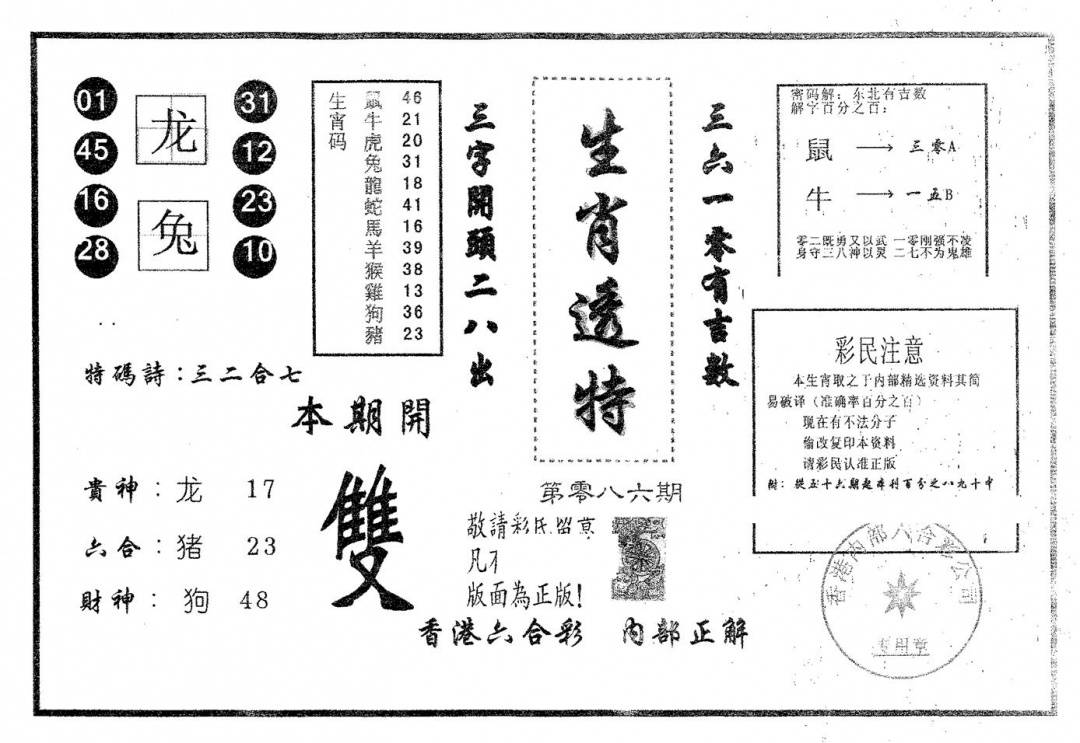 01
45
16
28
龙
兔
31
12
23
10
生宵码
鼠 46
牛 21
虎 20
兔 31
龍 18
蛇 41
馬 16
羊 39
猴 38
雞 13
狗 36
豬 23
三字開頭二八出
生肖透特
三六一零有吉数
密码解：东北有吉数
解字百分之百：
鼠 → 三零A
牛 → 一五B
零二既勇又以武 一零刚强不凌
身守三八神以灵 二七不为鬼雄
特碼詩：三二合七
本期開
雙
貴神：龙 17
六合：猪 23
財神：狗 48
第零八六期
敬請彩民留意
凡不
版面為正版!
香港六合彩 内部正解
彩民注意
本生宵取之于内部精选资料其简
易破译（准确率百分之百）
现在有不法分子
偷改复印本资料
请彩民认准正版
附：從五十六期起准利百分之八九十中
香港内部六合彩公司
专用章